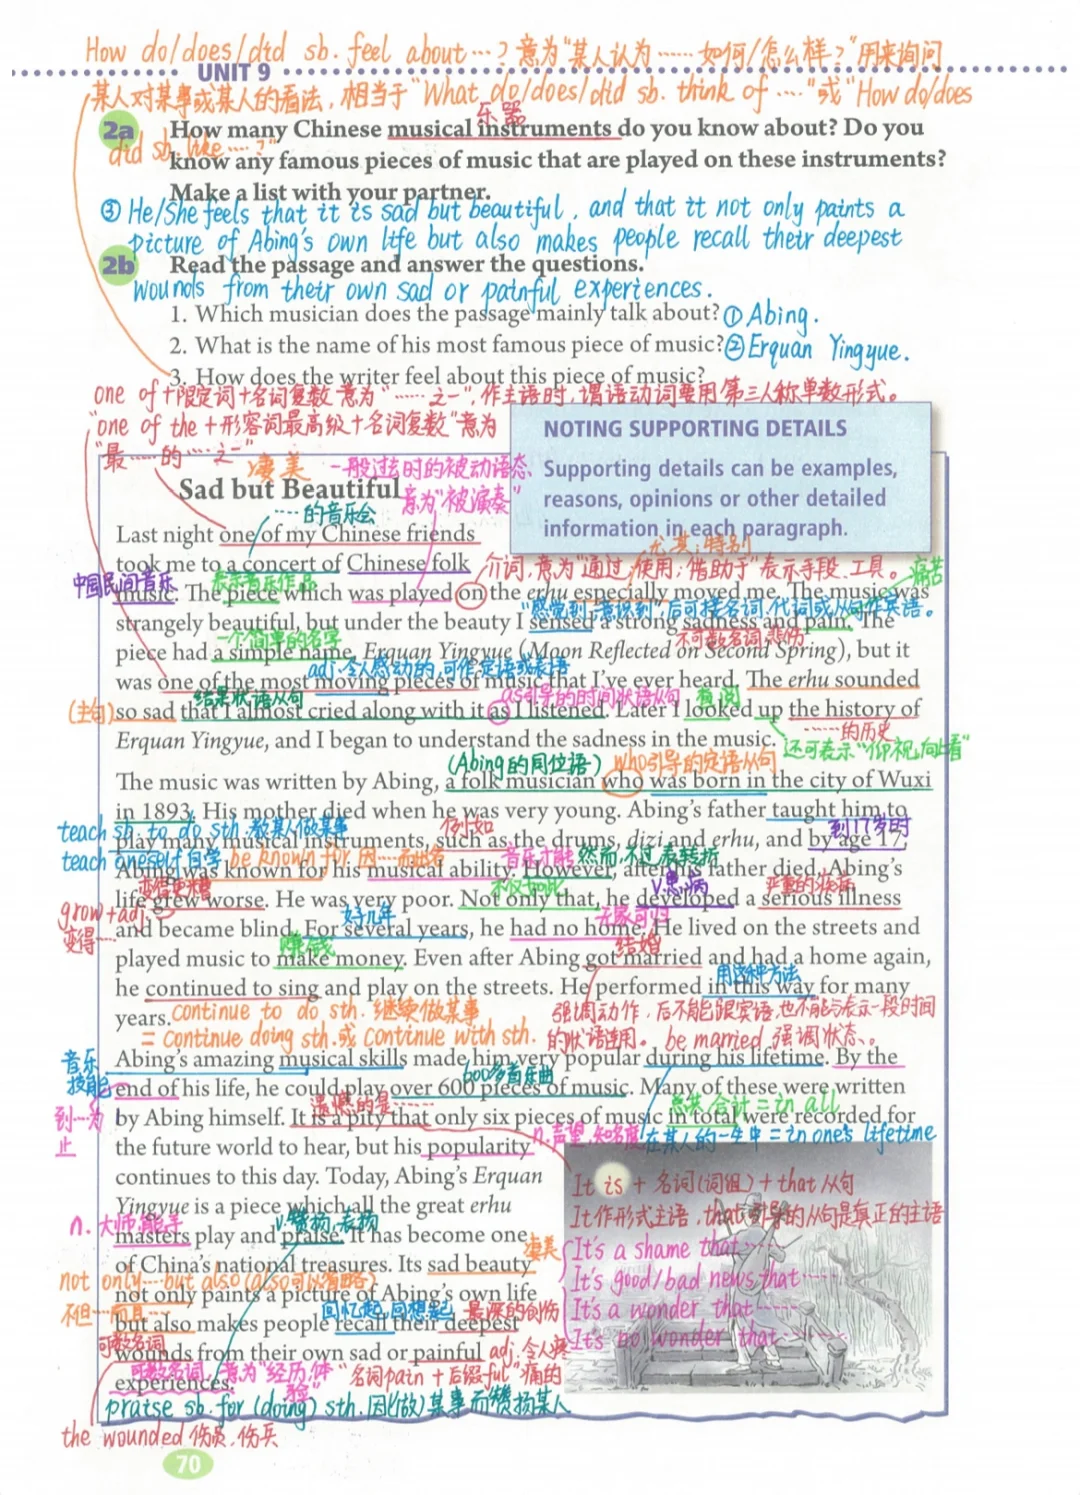 How do/does/did sb. feel about…? 意为"某人认为……如何/怎么样?"用来询问
UNIT 9
某人对某事或某人的看法, 相当于"What do/does/did sb. think of …."或"How do/does
did sb. like ….?"
乐器
2a How many Chinese musical instruments do you know about? Do you
know any famous pieces of music that are played on these instruments?
Make a list with your partner.
③ He/She feels that it is sad but beautiful, and that it not only paints a
picture of Abing's own life but also makes people recall their deepest
wounds from their own sad or painful experiences.
2b Read the passage and answer the questions.
1. Which musician does the passage mainly talk about? ① Abing.
2. What is the name of his most famous piece of music? ② Erquan Yingyue.
3. How does the writer feel about this piece of music?
one of+限定词+名词复数 意为"……之一", 作主语时, 谓语动词要用第三人称单数形式。
"one of the +形容词最高级+名词复数"意为
"最……的……之一"
NOTING SUPPORTING DETAILS
Supporting details can be examples,
reasons, opinions or other detailed
information in each paragraph.
凄美
一般过去时的被动语态
意为"被演奏"
Sad but Beautiful
…的音乐会
Last night one of my Chinese friends
took me to a concert of Chinese folk
介词, 意为"通过; 使用; 借助于"表示手段、工具。
尤其; 特别
中国民间音乐
表示音乐作品
痛苦
music. The piece which was played on the erhu especially moved me. The music was
"感觉到; 意识到", 后可接名词、代词或从句作宾语。
strangely beautiful, but under the beauty I sensed a strong sadness and pain. The
一个简单的名字
不可数名词 悲伤
piece had a simple name, Erquan Yingyue (Moon Reflected on Second Spring), but it
adj. 令人感动的, 可作定语或表语
was one of the most moving pieces of music that I've ever heard. The erhu sounded
结果状语从句
as引导的时间状语从句
查阅
(主句)
so sad that I almost cried along with it as I listened. Later I looked up the history of
……的历史
Erquan Yingyue, and I began to understand the sadness in the music.
还可表示"仰视, 向上看"
(Abing的同位语)
who引导的定语从句
The music was written by Abing, a folk musician who was born in the city of Wuxi
in 1893. His mother died when he was very young. Abing's father taught him to
teach sb. to do sth. 教某人做某事
例如
到17岁时
play many musical instruments, such as the drums, dizi and erhu, and by age 17,
teach oneself 自学
be known for 因……而出名
音乐才能
然而, 不过 表转折
Abing was known for his musical ability. However, after his father died, Abing's
变得更糟
不仅如此
v. 患病
严重的疾病
life grew worse. He was very poor. Not only that, he developed a serious illness
grow+adj.
变得…
好几年
无家可归
and became blind. For several years, he had no home. He lived on the streets and
赚钱
结婚
played music to make money. Even after Abing got married and had a home again,
用这种方法
he continued to sing and play on the streets. He performed in this way for many
years.
continue to do sth. 继续做某事
= continue doing sth. 或 continue with sth.
强调动作, 后不能跟宾语, 也不能与表示一段时间
的状语连用。be married 强调状态。
音乐
技能
Abing's amazing musical skills made him very popular during his lifetime. By the
600多首乐曲
end of his life, he could play over 600 pieces of music. Many of these were written
到…为
止
遗憾的是……
总共, 合计 = in all
by Abing himself. It is a pity that only six pieces of music in total were recorded for
the future world to hear, but his popularity
n. 声望, 知名度
在某人的一生中 = in one's lifetime
continues to this day. Today, Abing's Erquan
Yingyue is a piece which all the great erhu
n. 大师, 能手
v. 赞扬, 表扬
masters play and praise. It has become one
of China's national treasures. Its sad beauty
凄美
not only…but also (also可以省略)
not only paints a picture of Abing's own life
不但…而且…
回忆起, 回想起
最深的创伤
but also makes people recall their deepest
可数名词
wounds from their own sad or painful
adj. 令人疼
痛的
可数名词, 意为"经历; 体验"
名词pain + 后缀ful
experiences.
It is + 名词(词组) + that 从句
It作形式主语, that引导的从句是真正的主语
It's a shame that……
It's good/bad news that……
It's a wonder that……
It's no wonder that……
praise sb. for (doing) sth. 因(做)某事而赞扬某人
the wounded 伤员, 伤兵
70